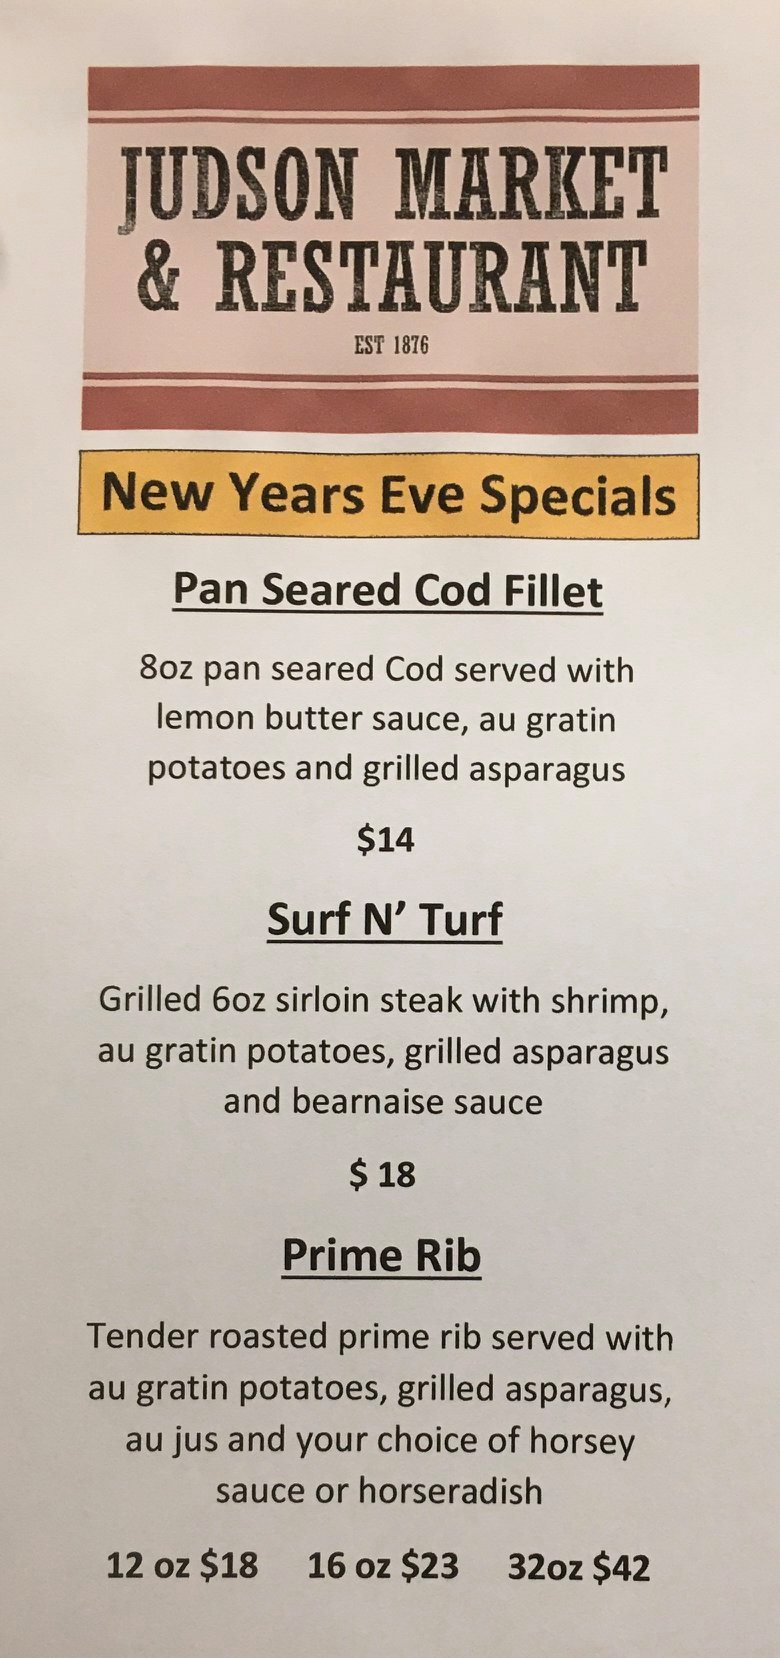 JUDSON MARKET
& RESTAURANT
EST 1876
New Years Eve Specials
Pan Seared Cod Fillet
8oz pan seared Cod served with
lemon butter sauce, au gratin
potatoes and grilled asparagus
$14
Surf N’ Turf
Grilled 6oz sirloin steak with shrimp,
au gratin potatoes, grilled asparagus
and bearnaise sauce
$ 18
Prime Rib
Tender roasted prime rib served with
au gratin potatoes, grilled asparagus,
au jus and your choice of horsey
sauce or horseradish
12 oz $18 16 oz $23 32oz $42